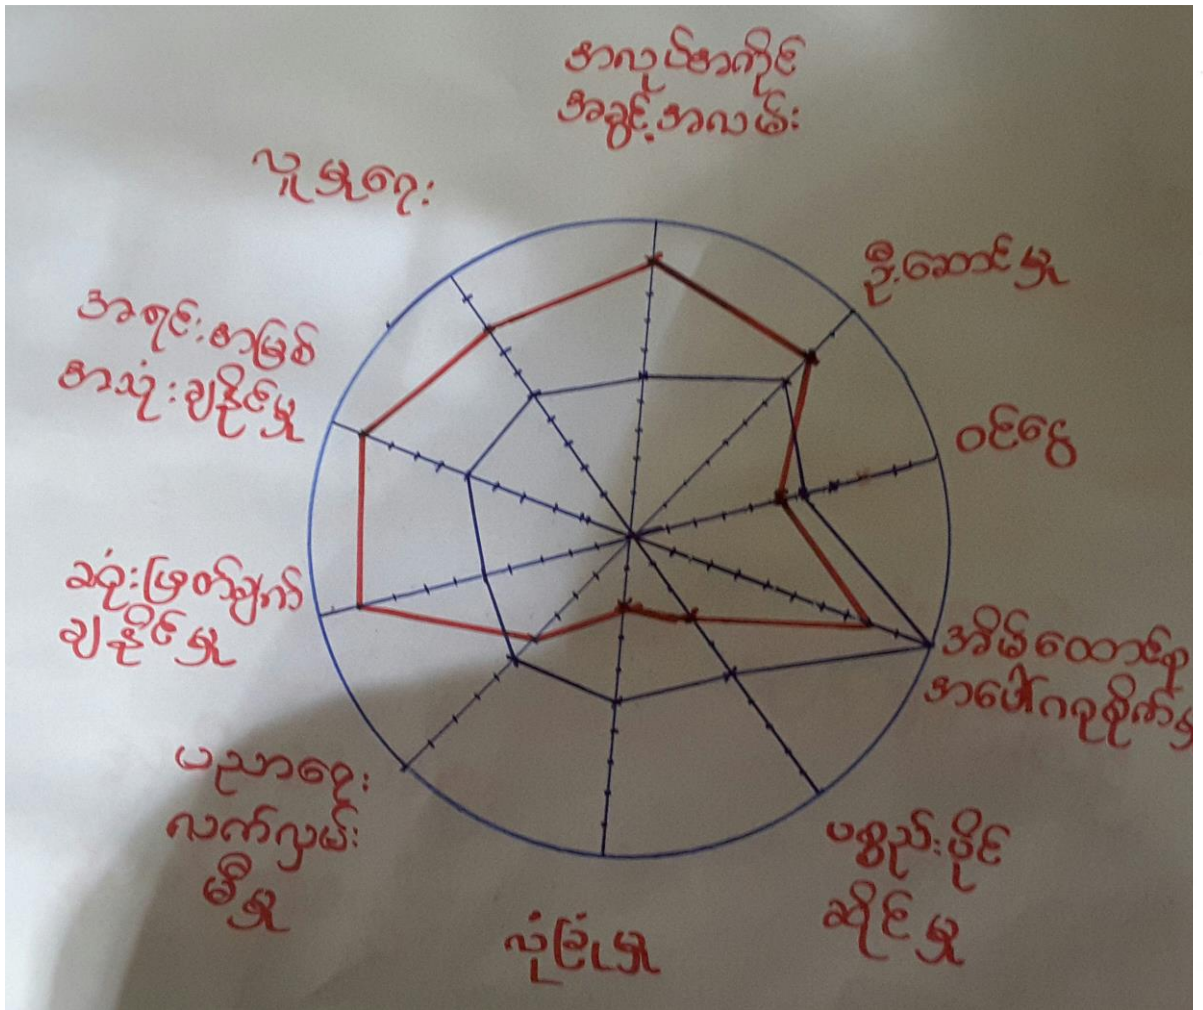 အလုပ်အကိုင်
အခွင့်အလမ်း
ဦးဆောင်မှု
ဝင်ငွေ
အိမ်ထောင်မှု
ပစ္စည်းပိုင်
ဆိုင်မှု
လုံခြုံမှု
ပညာရေး
လက်လှမ်း
မီမှု
ဆုံးဖြတ်ချက်
ချနိုင်မှု
အရင်းအမြစ်
အသုံးချနိုင်မှု
လူမှုရေး